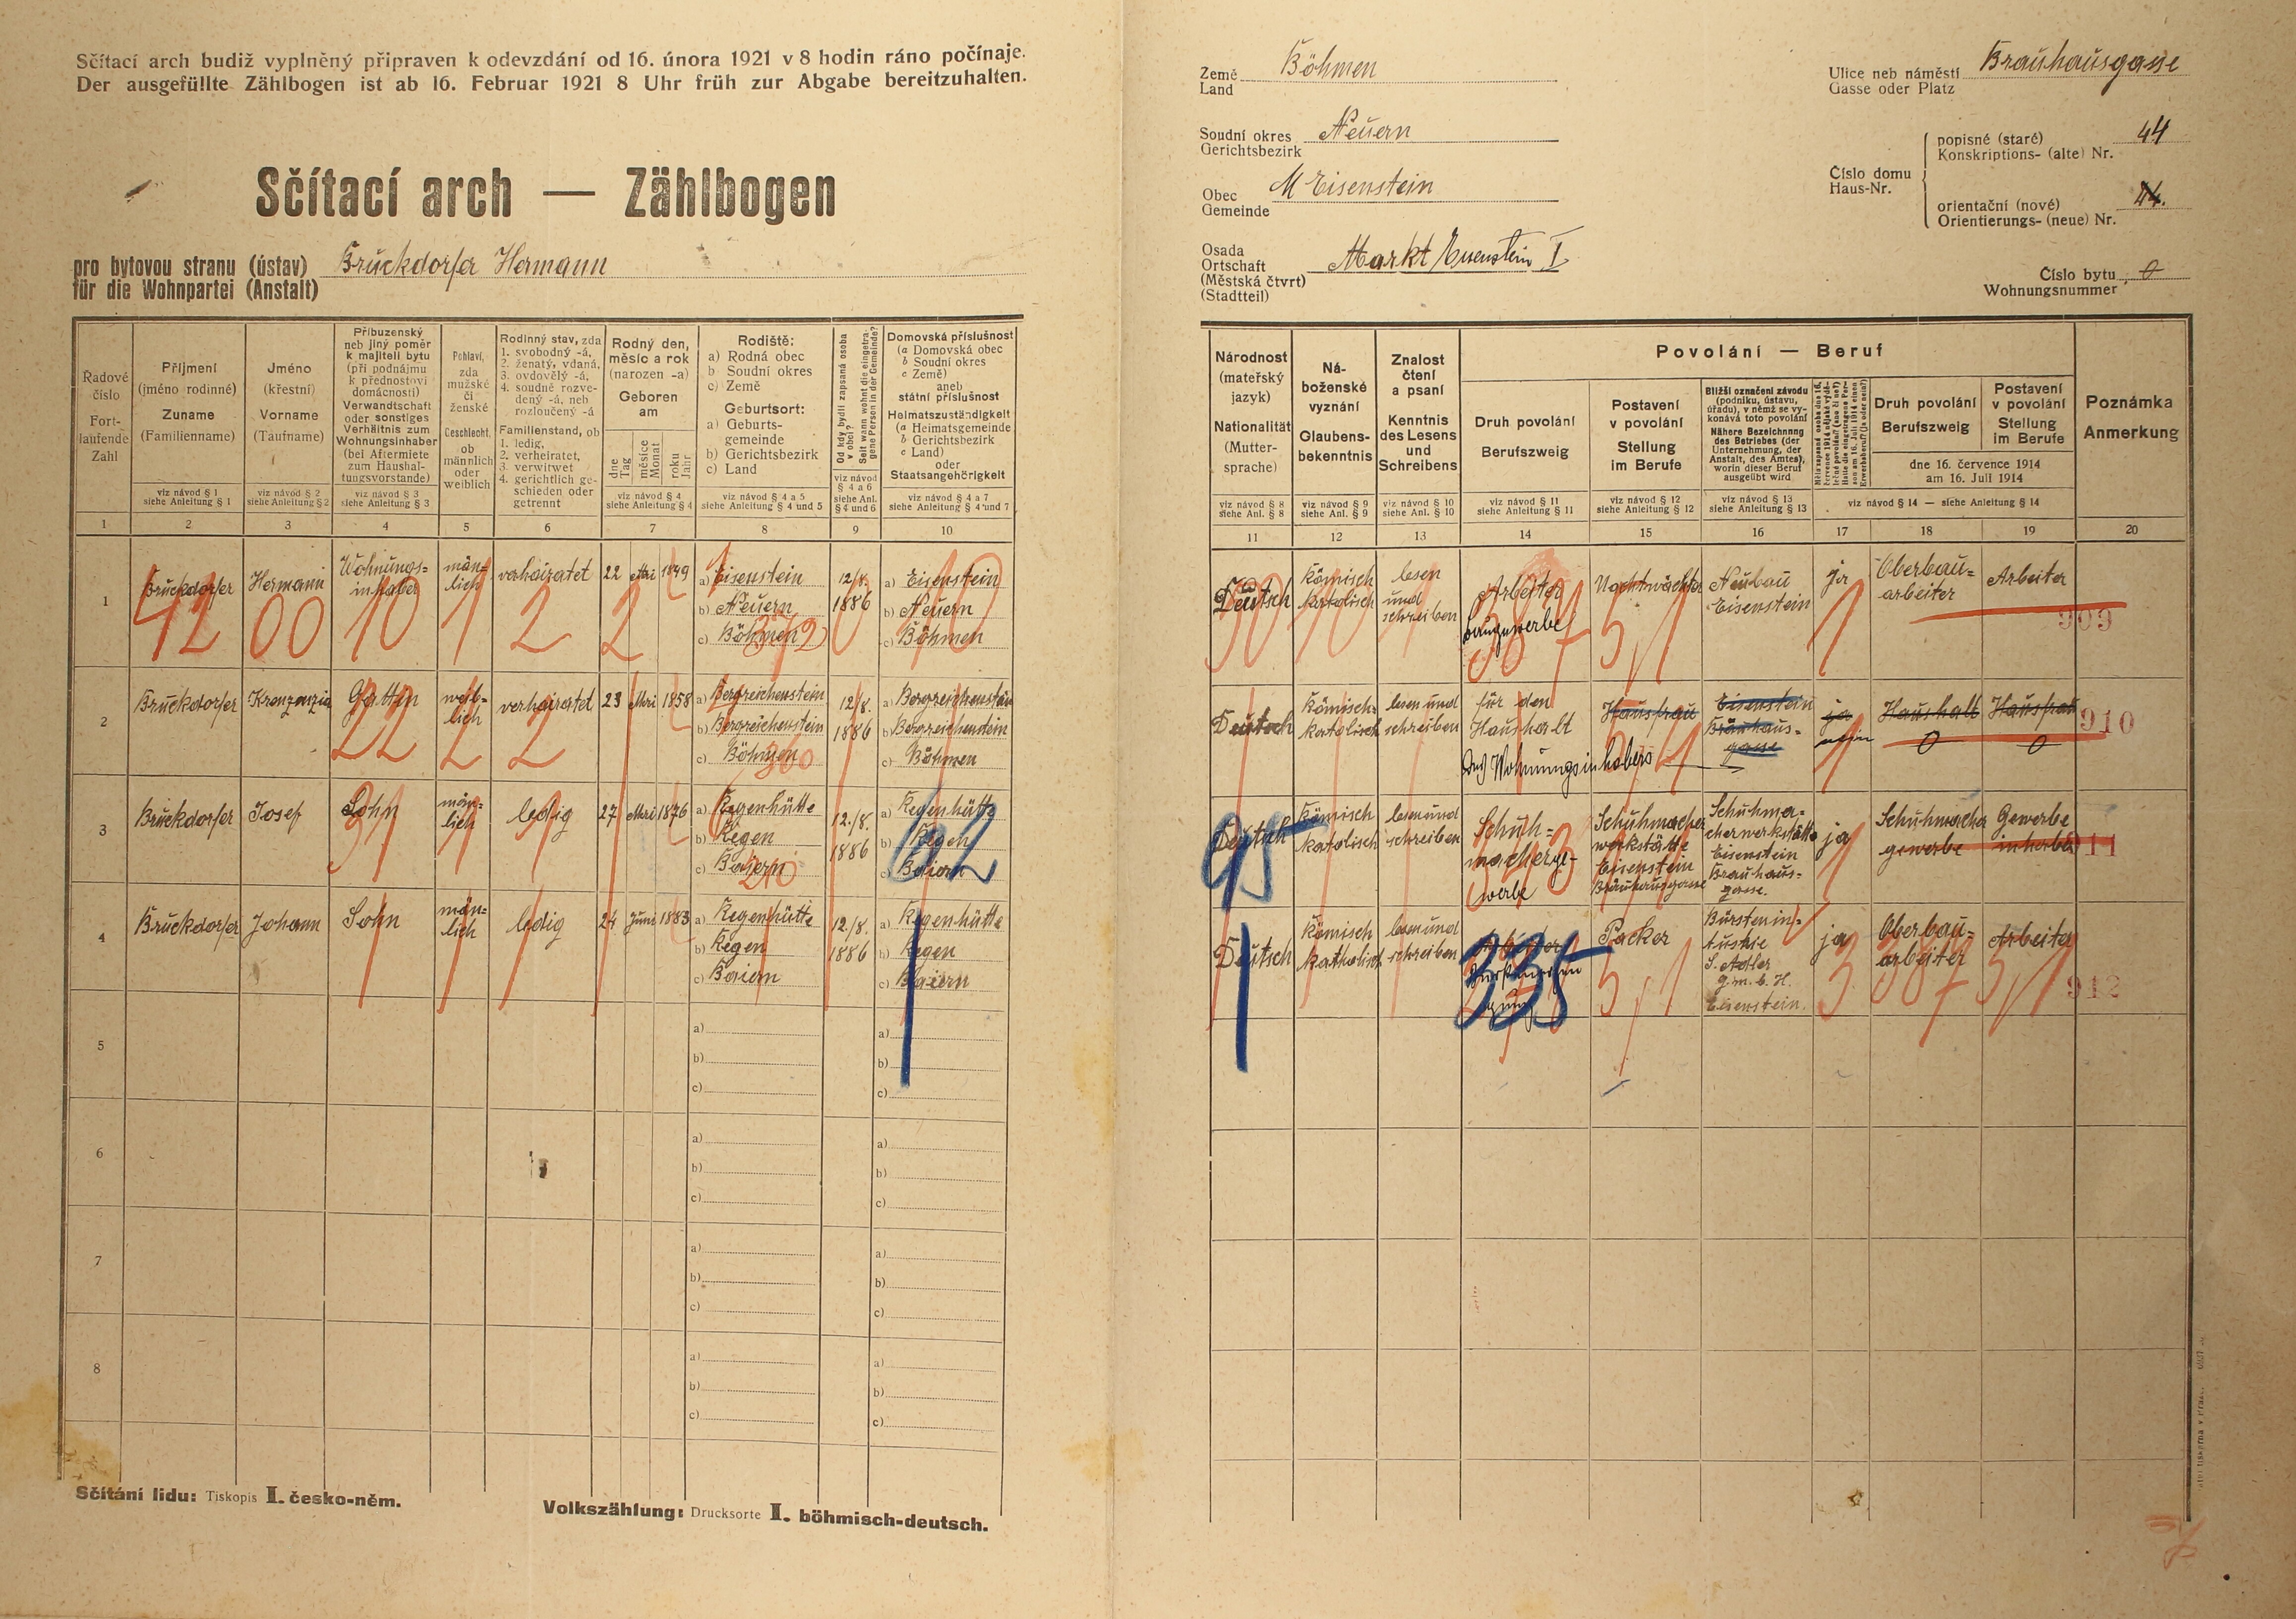 Sčítací arch budiž vyplněný připraven k odevzdání od 16. února 1921 v 8 hodin ráno počínaje.
Der ausgefüllte Zählbogen ist ab 16. Februar 1921 8 Uhr früh zur Abgabe bereitzuhalten.
Sčítací arch — Zählbogen
pro bytovou stranu (ústav)
für die Wohnpartei (Anstalt)
Bruckdorfer Hermann
Země
Land
Böhmen
Soudní okres
Gerichtsbezirk
Neuern
Obec
Gemeinde
M Eisenstein
Osada
Ortschaft
(Městská čtvrt)
(Stadtteil)
Markt Eisenstein I
Ulice neb náměstí
Gasse oder Platz
Brauhausgasse
Číslo domu
Haus-Nr.
popisné (staré)
Konskriptions- (alte) Nr.
44
orientační (nové)
Orientierungs- (neue) Nr.
Číslo bytu
Wohnungsnummer
0
Řadové
číslo
Fort-
laufende
Zahl
1
Příjmení
(jméno rodinné)
Zuname
(Familienname)
viz návod § 1
siehe Anleitung § 1
2
Jméno
(křestní)
Vorname
(Taufname)
viz návod § 2
siehe Anleitung § 2
3
Příbuzenský
neb jiný poměr
k majiteli bytu
(při podnájmu
k přednostovi
domácnosti)
Verwandtschaft
oder sonstiges
Verhältnis zum
Wohnungsinhaber
(bei Aftermiete
zum Haushal-
tungsvorstande)
viz návod § 3
siehe Anleitung § 3
4
Pohlaví,
zda
mužské
či
ženské
Geschlecht,
ob
männlich
oder
weiblich
5
Rodinný stav, zda
1. svobodný -á,
2. ženatý, vdaná,
3. ovdovělý -á,
4. soudně rozve-
dený -á, neb
rozloučený -á
Familienstand, ob
1. ledig,
2. verheiratet,
3. verwitwet
4. gerichtlich ge-
schieden oder
getrennt
6
Rodný den,
měsíc a rok
(narozen -a)
Geboren
am
dne
Tag
měsíce
Monat
roku
Jahr
viz návod § 4
siehe Anleitung § 4
7
Rodiště:
a) Rodná obec
b) Soudní okres
c) Země
Geburtsort:
a) Geburts-
gemeinde
b) Gerichtsbezirk
c) Land
viz návod § 4 a 5
siehe Anleitung § 4 und 5
8
Od kdy bydlí zapsaná osoba
v obci?
Seit wann wohnt die eingetra-
gene Person in der Gemeinde?
viz návod
§ 4 a 6
siehe Anl.
§ 4 und 6
9
Domovská příslušnost
(a Domovská obec
b Soudní okres
c Země)
aneb
státní příslušnost
Heimatszuständigkeit
(a Heimatsgemeinde
b Gerichtsbezirk
c Land)
oder
Staatsangehörigkeit
viz návod § 4 a 7
siehe Anleitung § 4 und 7
10
Národnost
(mateřský
jazyk)
Nationalität
(Mutter-
sprache)
viz návod § 8
siehe Anl. § 8
11
Ná-
boženské
vyznání
Glaubens-
bekenntnis
viz návod § 9
siehe Anl. § 9
12
Znalost
čtení
a psaní
Kenntnis
des Lesens
und
Schreibens
viz návod § 10
siehe Anl. § 10
13
Povolání — Beruf
Druh povolání
Berufszweig
viz návod § 11
siehe Anleitung § 11
14
Postavení
v povolání
Stellung
im Berufe
viz návod § 12
siehe Anleitung § 12
15
Bližší označení závodu
(podniku, ústavu,
úřadu), v němž se vy-
konává toto povolání
Nähere Bezeichnung
des Betriebes (der
Unternehmung, der
Anstalt, des Amtes),
worin dieser Beruf
ausgeübt wird
viz návod § 13
siehe Anleitung § 13
16
17
Druh povolání
Berufszweig
18
Postavení
v povolání
Stellung
im Berufe
19
dne 16. července 1914
am 16. Juli 1914
viz návod § 14 — siehe Anleitung § 14
Poznámka
Anmerkung
20
1
Bruckdorfer
Hermann
Wohnungs=
inhaber
män=
lich
verheiratet
22
Mai
1849
a) Eisenstein
b) Neuern
c) Böhmen
12/8.
1886
a) Eisenstein
b) Neuern
c) Böhmen
Deutsch
Römisch
katolisch
lesen
und
schreiben
Arbeiter
Baugewerbe
Nachtwächter
Neubau
Eisenstein
ja
Oberbau=
arbeiter
Arbeiter
909
2
Bruckdorfer
Kreszenzia
Gattin
weib=
lich
verheiratet
23
Mai
1858
a) Bergreichenstein
b) Bergreichenstein
c) Böhmen
12/8.
1886
a) Bergreichenstein
b) Bergreichenstein
c) Böhmen
Deutsch
Römisch=
katolisch
lesen und
schreiben
für den
Haushalt
des Wohnungsinhabers
Hausfrau
Eisenstein
Brauhaus=
gasse
ja
nein
Haushalt
0
Hausfrau
0
910
3
Bruckdorfer
Josef
Sohn
män=
lich
ledig
27
Mai
1876
a) Regenhütte
b) Regen
c) Baiern
12./8.
1886
a) Regenhütte
b) Regen
c) Baiern
Deutsch
Römisch
katolisch
lesen und
schreiben
Schuh=
macherge-
werbe
Schuhmacher
werkstätte
Eisenstein
Brauhausgasse
Schuhma=
cherwerkstätte
Eisenstein
Brauhaus=
gasse.
ja
Schuhmacher
gewerbe
Gewerbe
inhaber
911
4
Bruckdorfer
Johann
Sohn
män=
lich
ledig
24
Juni
1883
a) Regenhütte
b) Regen
c) Baiern
12./8.
1886
a) Regenhütte
b) Regen
c) Baiern
Deutsch
Römisch
katholisch
lesen und
schreiben
335
Packer
Bürstenin=
dustrie
S. Adler
G. m. b. H.
Eisenstein.
ja
Oberbau=
arbeiter
Arbeiter
912
5
a)
b)
c)
a)
b)
c)
6
a)
b)
c)
a)
b)
c)
7
a)
b)
c)
a)
b)
c)
8
a)
b)
c)
a)
b)
c)
Sčítání lidu: Tiskopis I. česko-něm.
Volkszählung: Drucksorte I. böhmisch-deutsch.